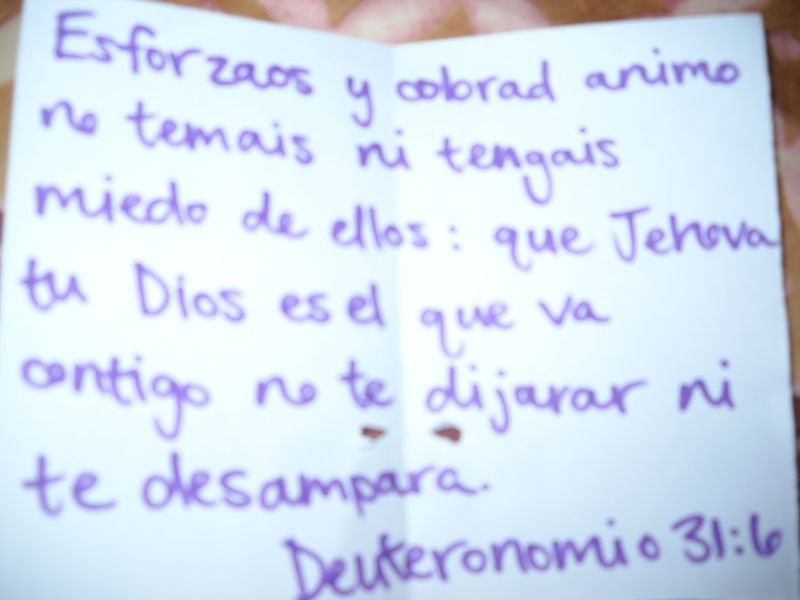 Esforzaos y cobrad animo
no temais ni tengais
miedo de ellos: que Jehova
tu Dios es el que va
contigo no te dijarar ni
te desampara.
Deuteronomio 31:6